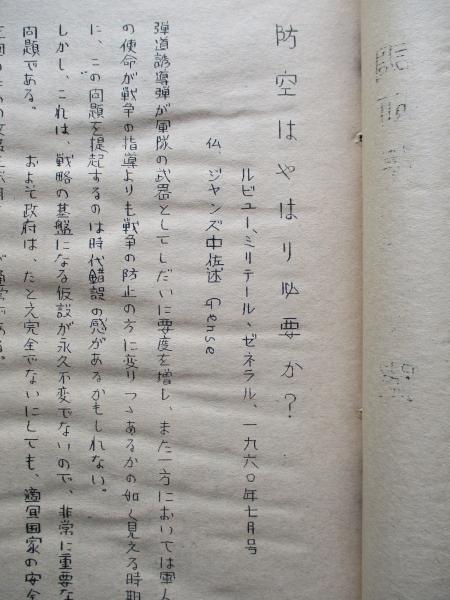 防空はやはり必要か？
ルビュー、ミリテール、ゼネラル、一九六〇年七月号
仏、ジャンズ中佐述 Gense
弾道誘導弾が軍隊の武器としてしだいに要度を増し、また一方においては軍人
の使命が戦争の指導よりも戦争の防止の方に変りつゝあるかの如く見える時期
に、この問題を提起するのは時代錯誤の感があるかもしれない。
しかし、これは、戦略の基盤になる仮説が永久不変でないので、非常に重要な
問題である。 およそ政府は、たとえ完全でないにしても、適宜国家の安全